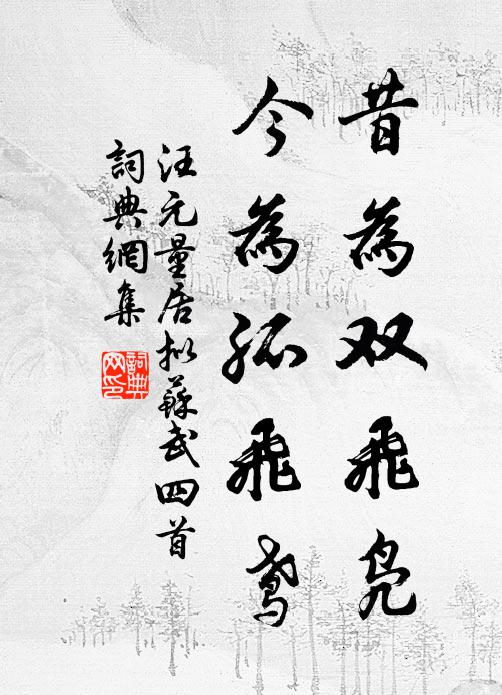 昔為双飛鳧
今為孤飛鳶
汪元量居拟蘇武四首
詞典網集
詞典
网印